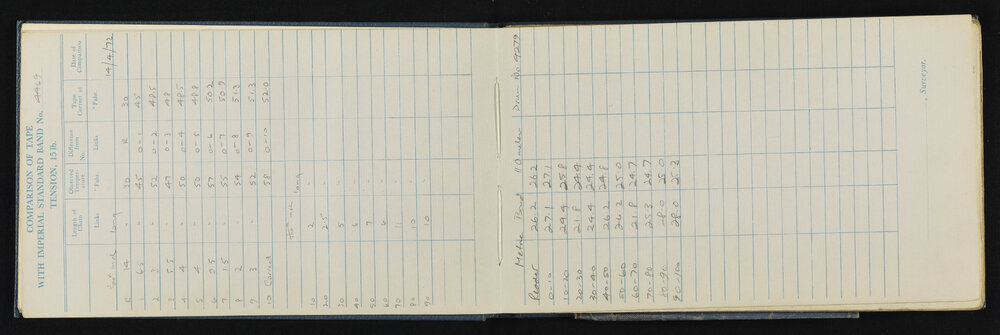 COMPARISON OF TAPE
WITH IMPERIAL STANDARD BAND No. 4469
TENSION, 15 lb.
Length of Chain Observed Temperature Difference from No. Tape Correct at Date of Comparison
Links ° Fahr. Links ° Fahr.
long 14/4/72
R 14 - 30 R 30
1 6.5 - 45 0-1 45
2 3 - 52 0-2 48.5
3 5.5 - 47 0-3 48
4 4 - 50 0-4 48.5
5 4 - 50 0-5 48.8
6 0.5 - 57 0-6 50.2
7 1.5 - 55 0-7 50.9
8 2 - 54 0-8 51.3
9 3 - 52 0-9 51.3
10 Correct 58 0-10 52.0
long
10 2 -
20 2.5 -
30 5 -
40 6 -
50 7 -
60 6 -
70 11 -
80 10 -
90 10 -
Metric Band 100 meter Drum No. 4279
Reader 26.2 26.2
0-10 27.1 27.1
10-20 24.4 25.8
20-30 21.8 24.4
30-40 24.4 24.4
40-50 26.2 24.8
50-60 26.2 25.0
60-70 21.8 24.7
70-80 25.3 24.7
80-90 28.0 25.0
90-100 28.0 25.3
, Surveyor.